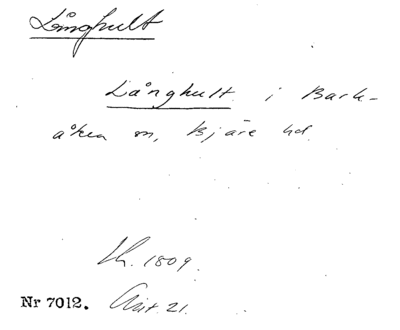 Långhult
Långhult i Bark-
åkra sn, Bjäre hd.
Lh. 1809.
Nr 7012. Ant. 21.